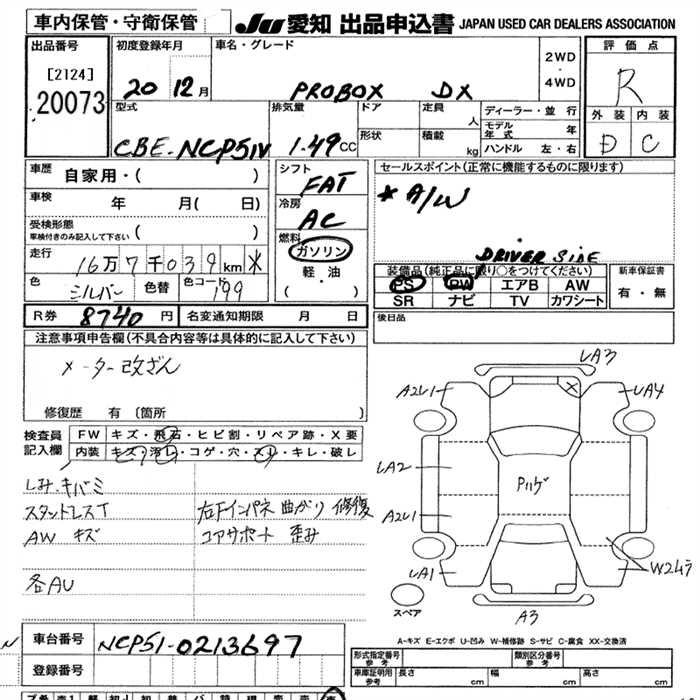 車内保管・守衛保管 JU 愛知 出品申込書 JAPAN USED CAR DEALERS ASSOCIATION
出品番号 初度登録年月 車名・グレード 評価点
[2124] 20 12月 PROBOX DX 2WD・4WD R
20073 型式 排気量 ドア 定員 人 ディーラー・並行 外装 内装
CBE-NCP51V 1.49CC 形状 積載 kg モデル年式 年 D C
ハンドル 左・右
車歴 自家用・( ) シフト FAT セールスポイント(正常に機能するものに限ります)
車検 年 月( 日) 冷房 AC *A/W
受検形態 車検付きのみ記入して下さい ( ) 燃料 ガソリン DRIVER SIDE
走行 16万7千039km 軽・油 装備品(純正品に限り○をつけてください) 新車保証書
色 シルバー 色替 色コード 199 ( ) PS PW エアB AW 有・無
SR ナビ TV カワシート
R券 8740円 名変通知期限 月 日 後日品
注意事項申告欄(不具合内容等は具体的に記入して下さい)
メーター改ざん
修復歴 有 〔箇所 〕
検査員記入欄 FW キズ・飛石・ヒビ割・リペア跡・X要
内装 キズ・汚レ・コゲ・穴・スレ・キレ・破レ
しみ、キバミ
スタンドレスT 右Fインパネ 曲がり 修復
AW キズ コアサポート 歪み
各AU
LA3
A2L1 LA4
LA2 Pハゲ
A2L1
LA1 W2ムラ
スペア A3
A-キズ E-エクボ U-凹み W-補修跡 S-サビ C-腐食 XX-交換済
車台番号 NCP51-0213697
登録番号
形式指定番号 参考 類別区分番号 参考
車庫証明用 参考 長さ cm 幅 cm 高さ cm